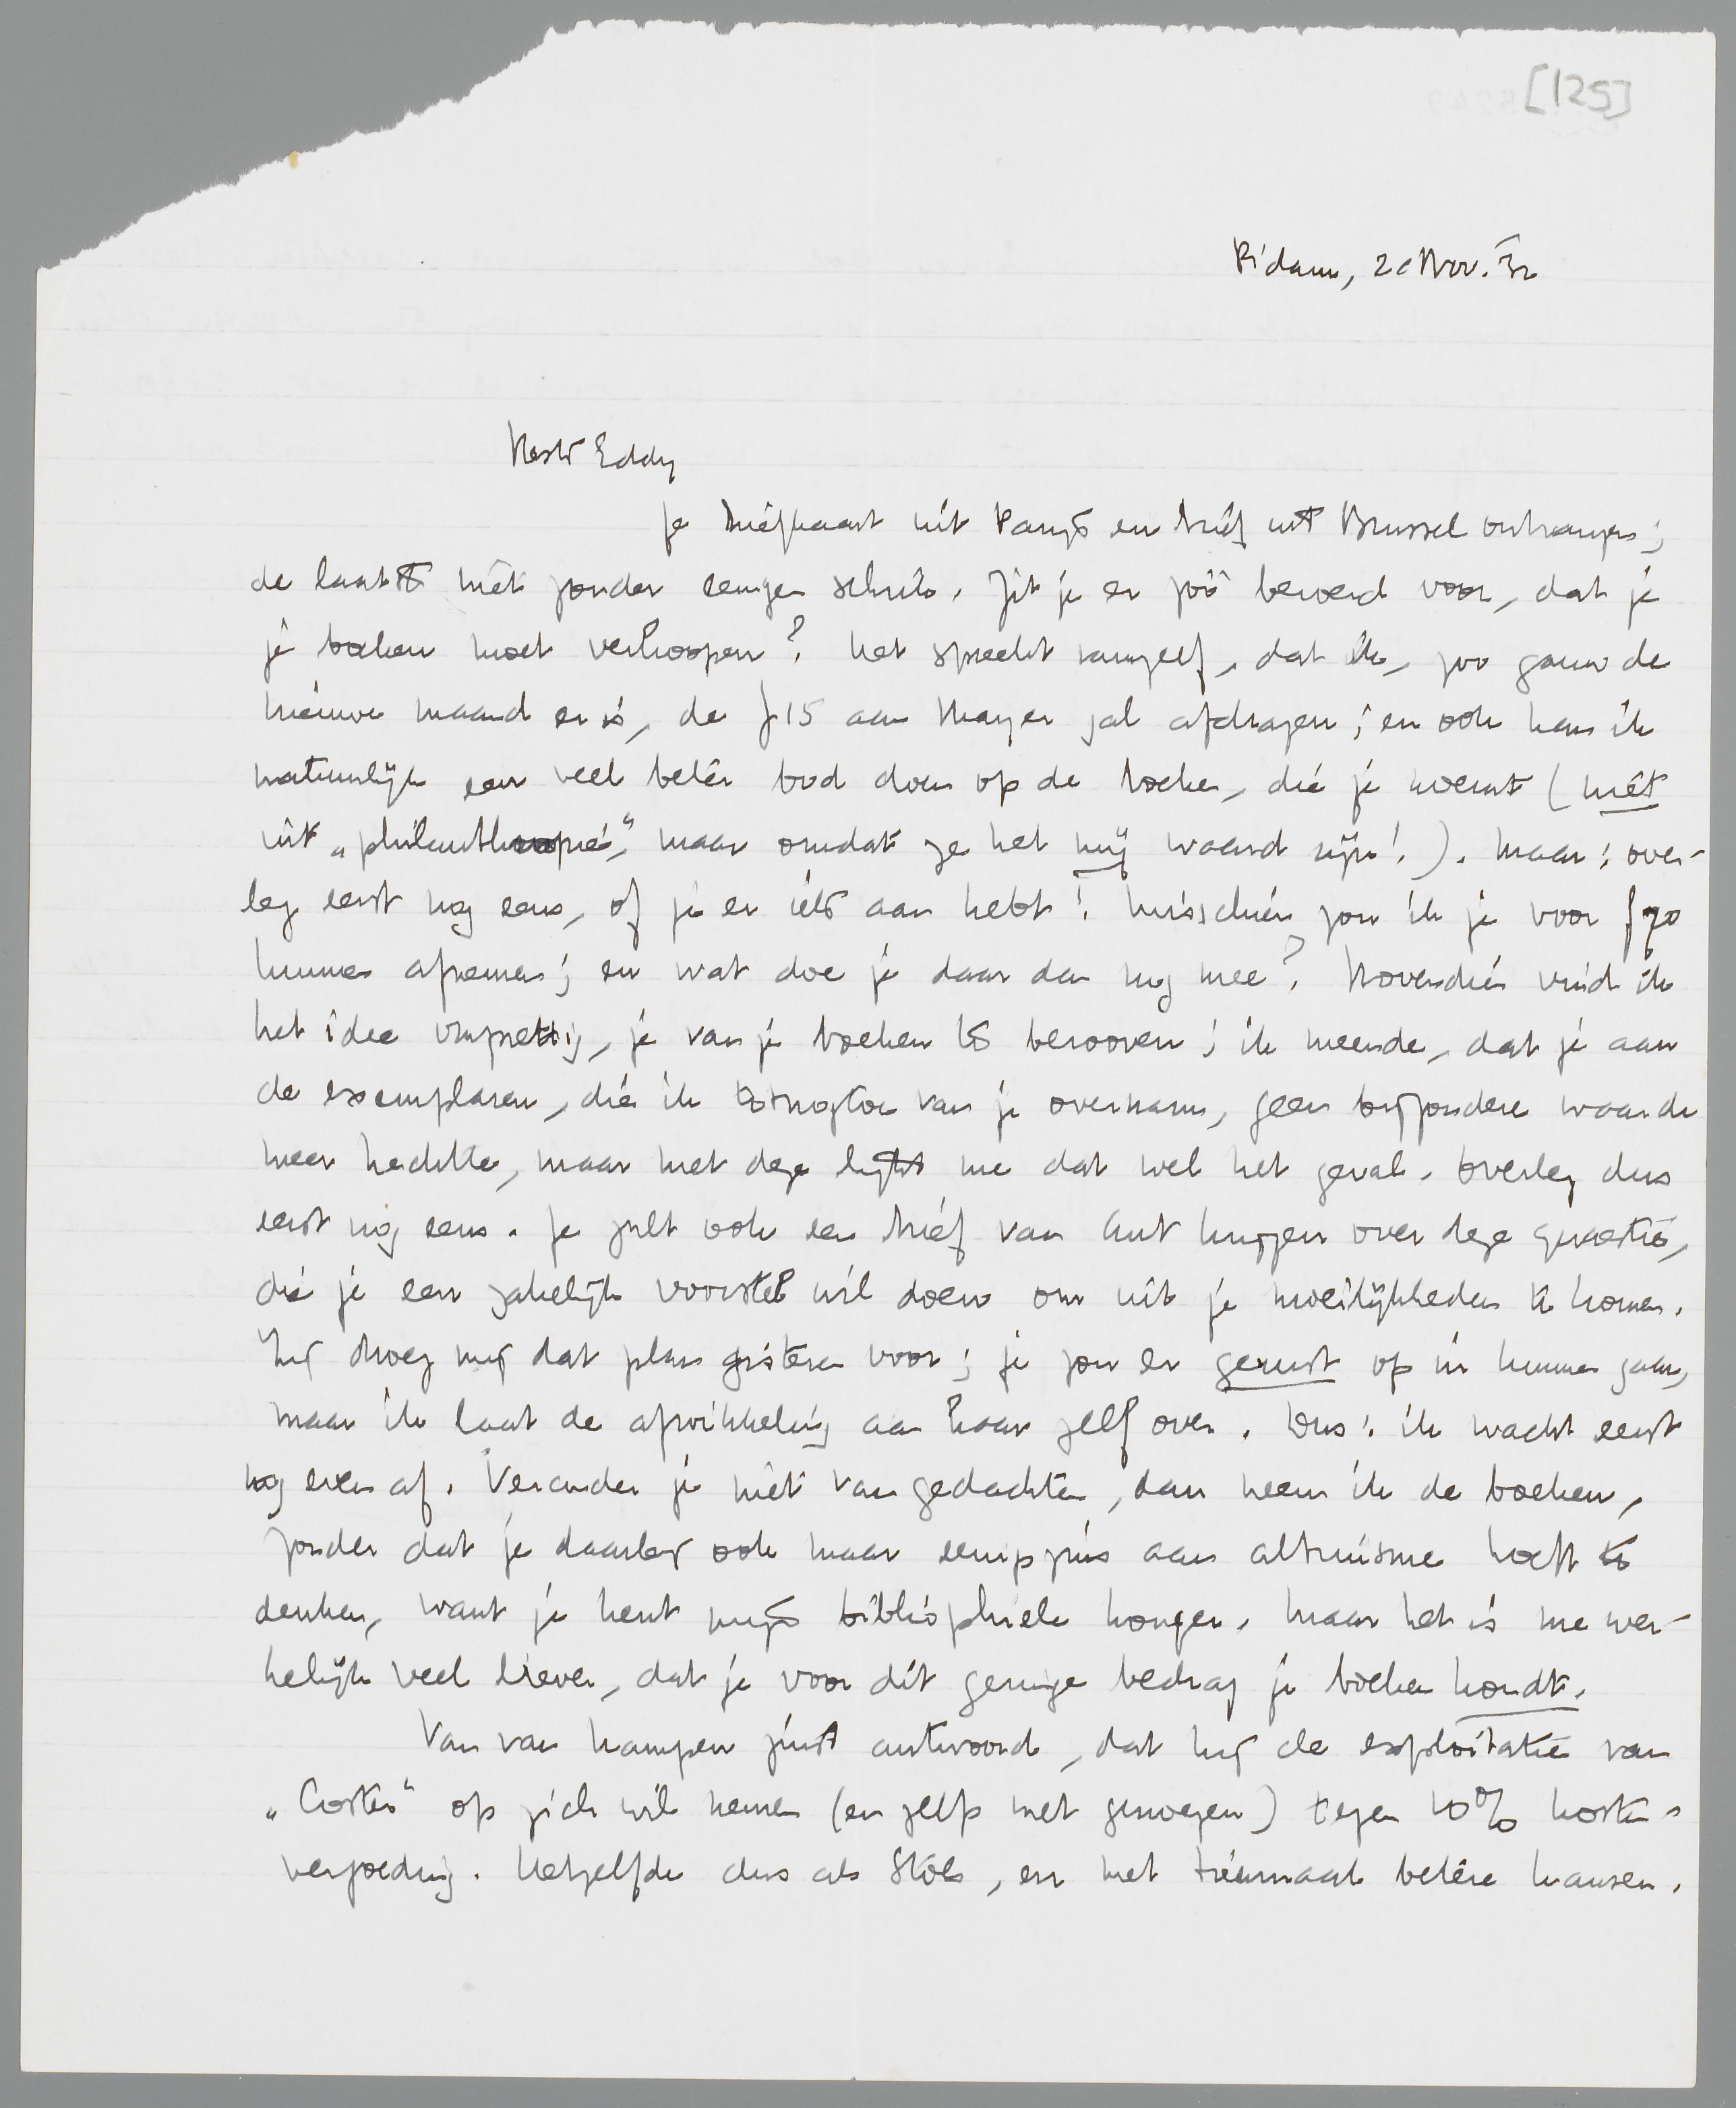 [125]
R'dam, 20 Nov. '32
Beste Eddy
Je briefkaart uit Parijs en brief uit Brussel ontvangen;
de laatste niet zonder eenigen schrik. Zit je er zóó beroerd voor, dat je
je boeken moet verkoopen? Het spreekt vanzelf, dat ik, zoo gauw de
nieuwe maand er is, de ƒ15 aan Mayer zal afdragen; en ook kan ik
natuurlijk een veel beter bod doen op de boeken, die je noemt (niet
uit „philanthropie”, maar omdat ze het mij waard zijn!). Maar: over-
leg eerst nog eens, of je er iets aan hebt! Misschien zou ik je voor ƒ70
kunnen afnemen; en wat doe je daar dan nog mee? Bovendien vind ik
het idee onprettig, je van je boeken te berooven; ik meende, dat je aan
de exemplaren, die ik tot nogtoe van je overnam, geen bijzondere waarde
meer hechtte, maar met deze lijkt me dat wel het geval. Overleg dus
eerst nog eens. Je zult ook een brief van Ant krijgen over deze quaestie,
die je een zakelijk voorstel wil doen om uit je moeilijkheden te komen.
Zij droeg mij dat plan gisteren voor; je zou er gerust op in kunnen gaan,
maar ik laat de afwikkeling aan haar zelf over. Dus: ik wacht eerst
nog even af. Verander je niet van gedachten, dan neem ik de boeken,
zonder dat je daarbij ook maar eenigszins aan altruisme hoeft te
denken, want je kent mijn bibliophiele honger. Maar het is me wer-
kelijk veel liever, dat je voor dit geringe bedrag je boeken houdt.
Van van Kampen juist antwoord, dat hij de exploitatie van
„Coster” op zich wil nemen (en zelfs met genoegen) tegen 10% kosten-
vergoeding. Hetzelfde dus als Stols, en met tienmaal betere kansen.